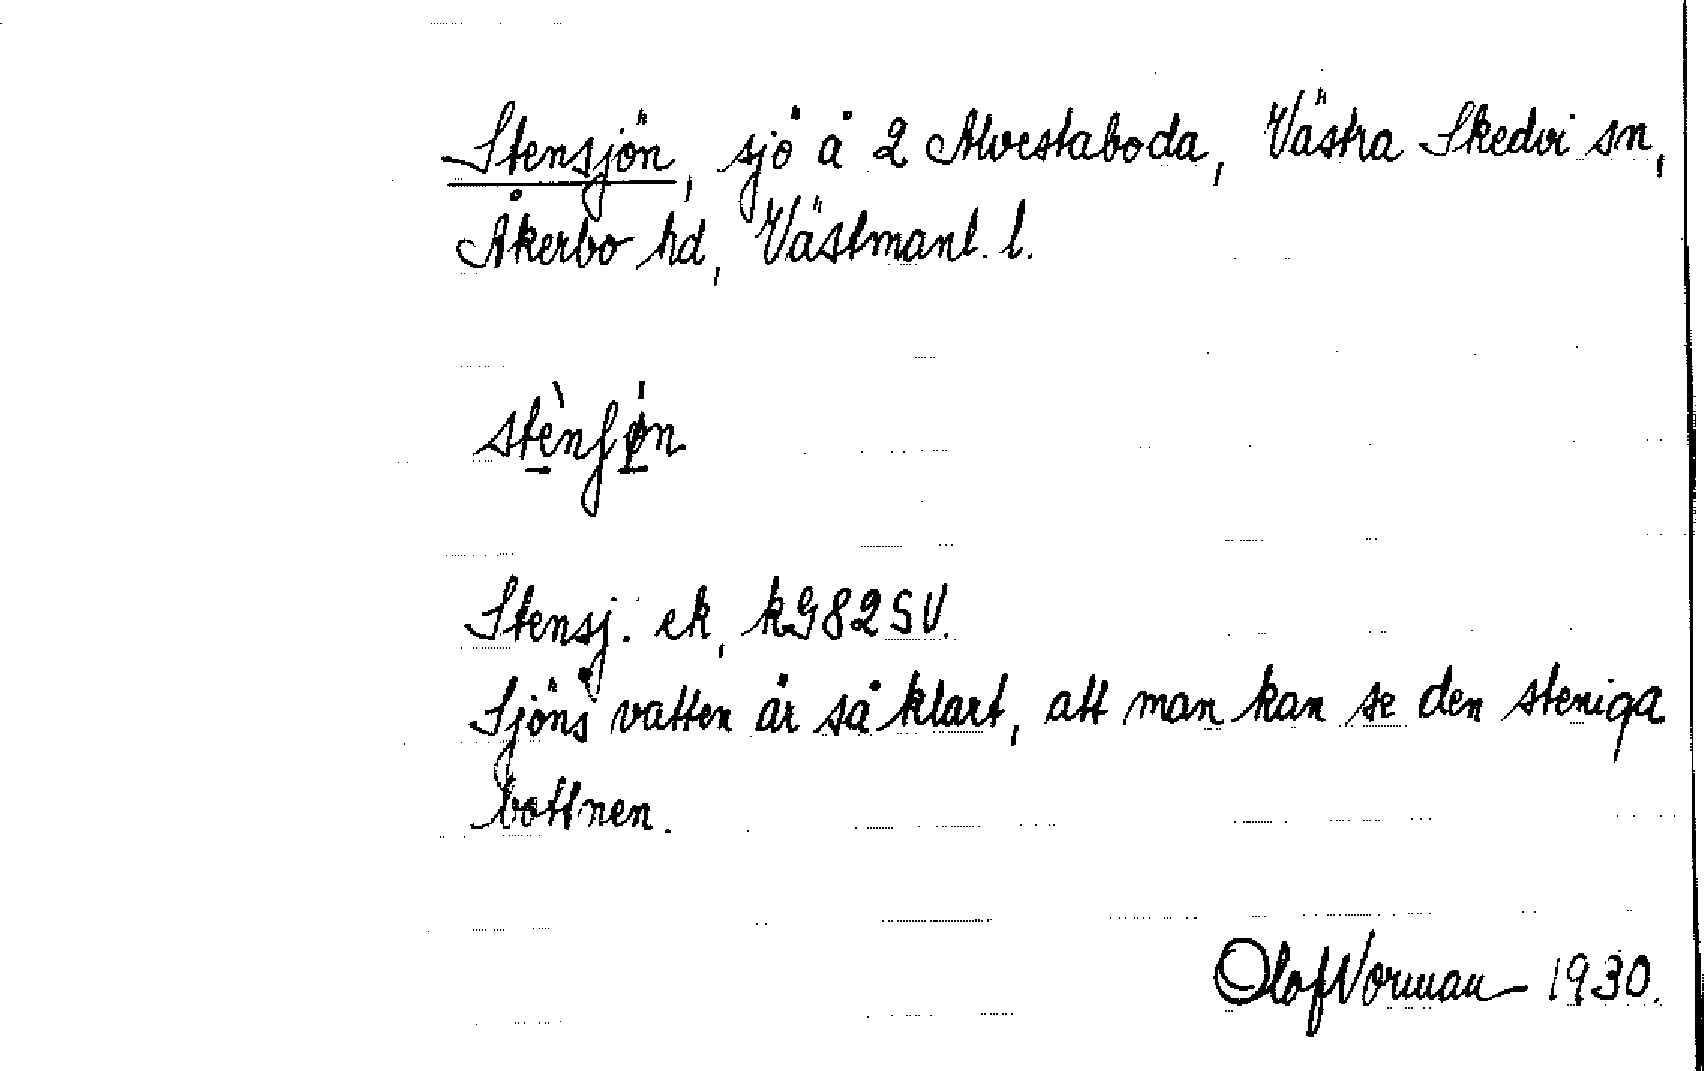 Stensjön, sjö å 2 Alvestaboda, Västra Skedvi sn,
Åkerbo hd, Västmanl. l.
stènʃø̀n
Stensj. ek, kG82SV.
Sjöns vatten är så klart, att man kan se den steniga
bottnen.
Olof Norman 1930.